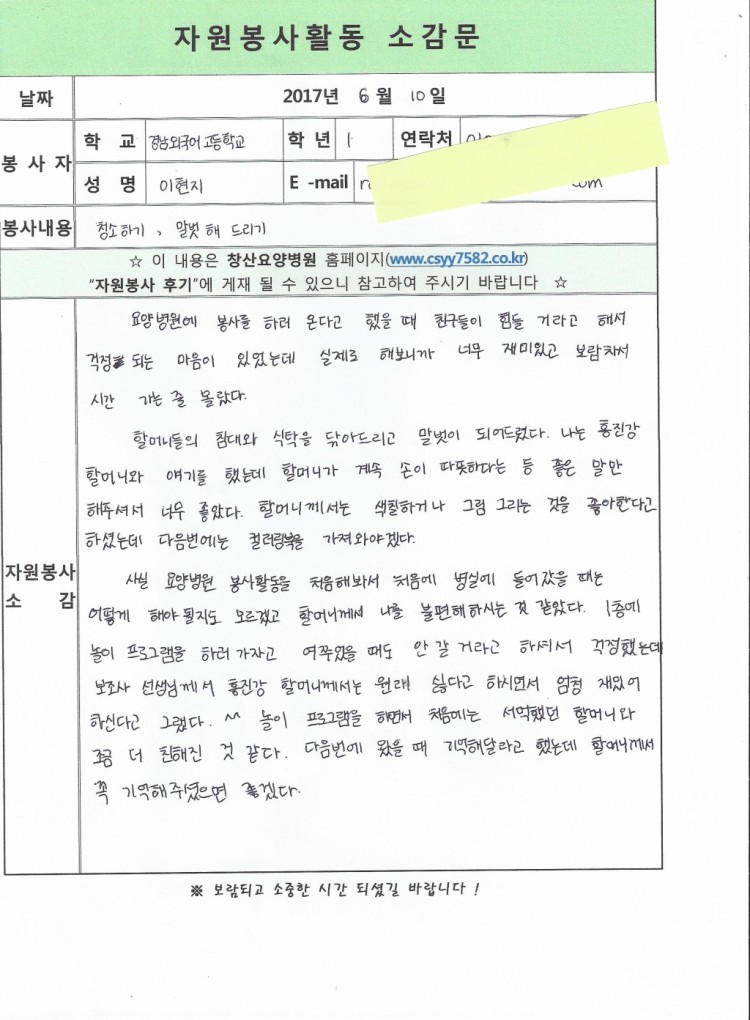 자원봉사활동 소감문
날짜 2017년 6월 10일
봉사자 학 교 경남외국어 고등학교 학 년 1 연락처
성 명 이현지 E -mail com
봉사내용 청소하기, 말벗 해 드리기
☆ 이 내용은 창산요양병원 홈페이지(www.csyy7582.co.kr)
“자원봉사 후기”에 게재 될 수 있으니 참고하여 주시기 바랍니다 ☆
자원봉사 소 감
요양병원에 봉사를 하러 온다고 했을 때 친구들이 힘들 거라고 해서
걱정 되는 마음이 있었는데 실제로 해보니까 너무 재미있고 보람차서
시간 가는 줄 몰랐다.
할머니들의 침대와 식탁을 닦아드리고 말벗이 되어드렸다. 나는 홍진강
할머니와 얘기를 했는데 할머니가 계속 손이 따뜻하다는 등 좋은 말만
해주셔서 너무 좋았다. 할머니께서는 색칠하거나 그림 그리는 것을 좋아한다고
하셨는데 다음번에는 컬러링북을 가져와야겠다.
사실 요양병원 봉사활동을 처음해봐서 처음에 병실에 들어갔을 때는
어떻게 해야 될지도 모르겠고 할머니께서 나를 불편해하시는 것 같았다. 1층에
놀이 프로그램을 하러 가자고 여쭈었을 때도 안 갈 거라고 하셔서 걱정했는데
보조사 선생님께서 홍진강 할머니께서는 원래 싫다고 하시면서 엄청 재밌어
하신다고 그랬다. ^^ 놀이 프로그램을 하면서 처음에는 서먹했던 할머니와
조금 더 친해진 것 같다. 다음번에 왔을 때 기억해달라고 했는데 할머니께서
꼭 기억해주셨으면 좋겠다.
※ 보람되고 소중한 시간 되셨길 바랍니다 !